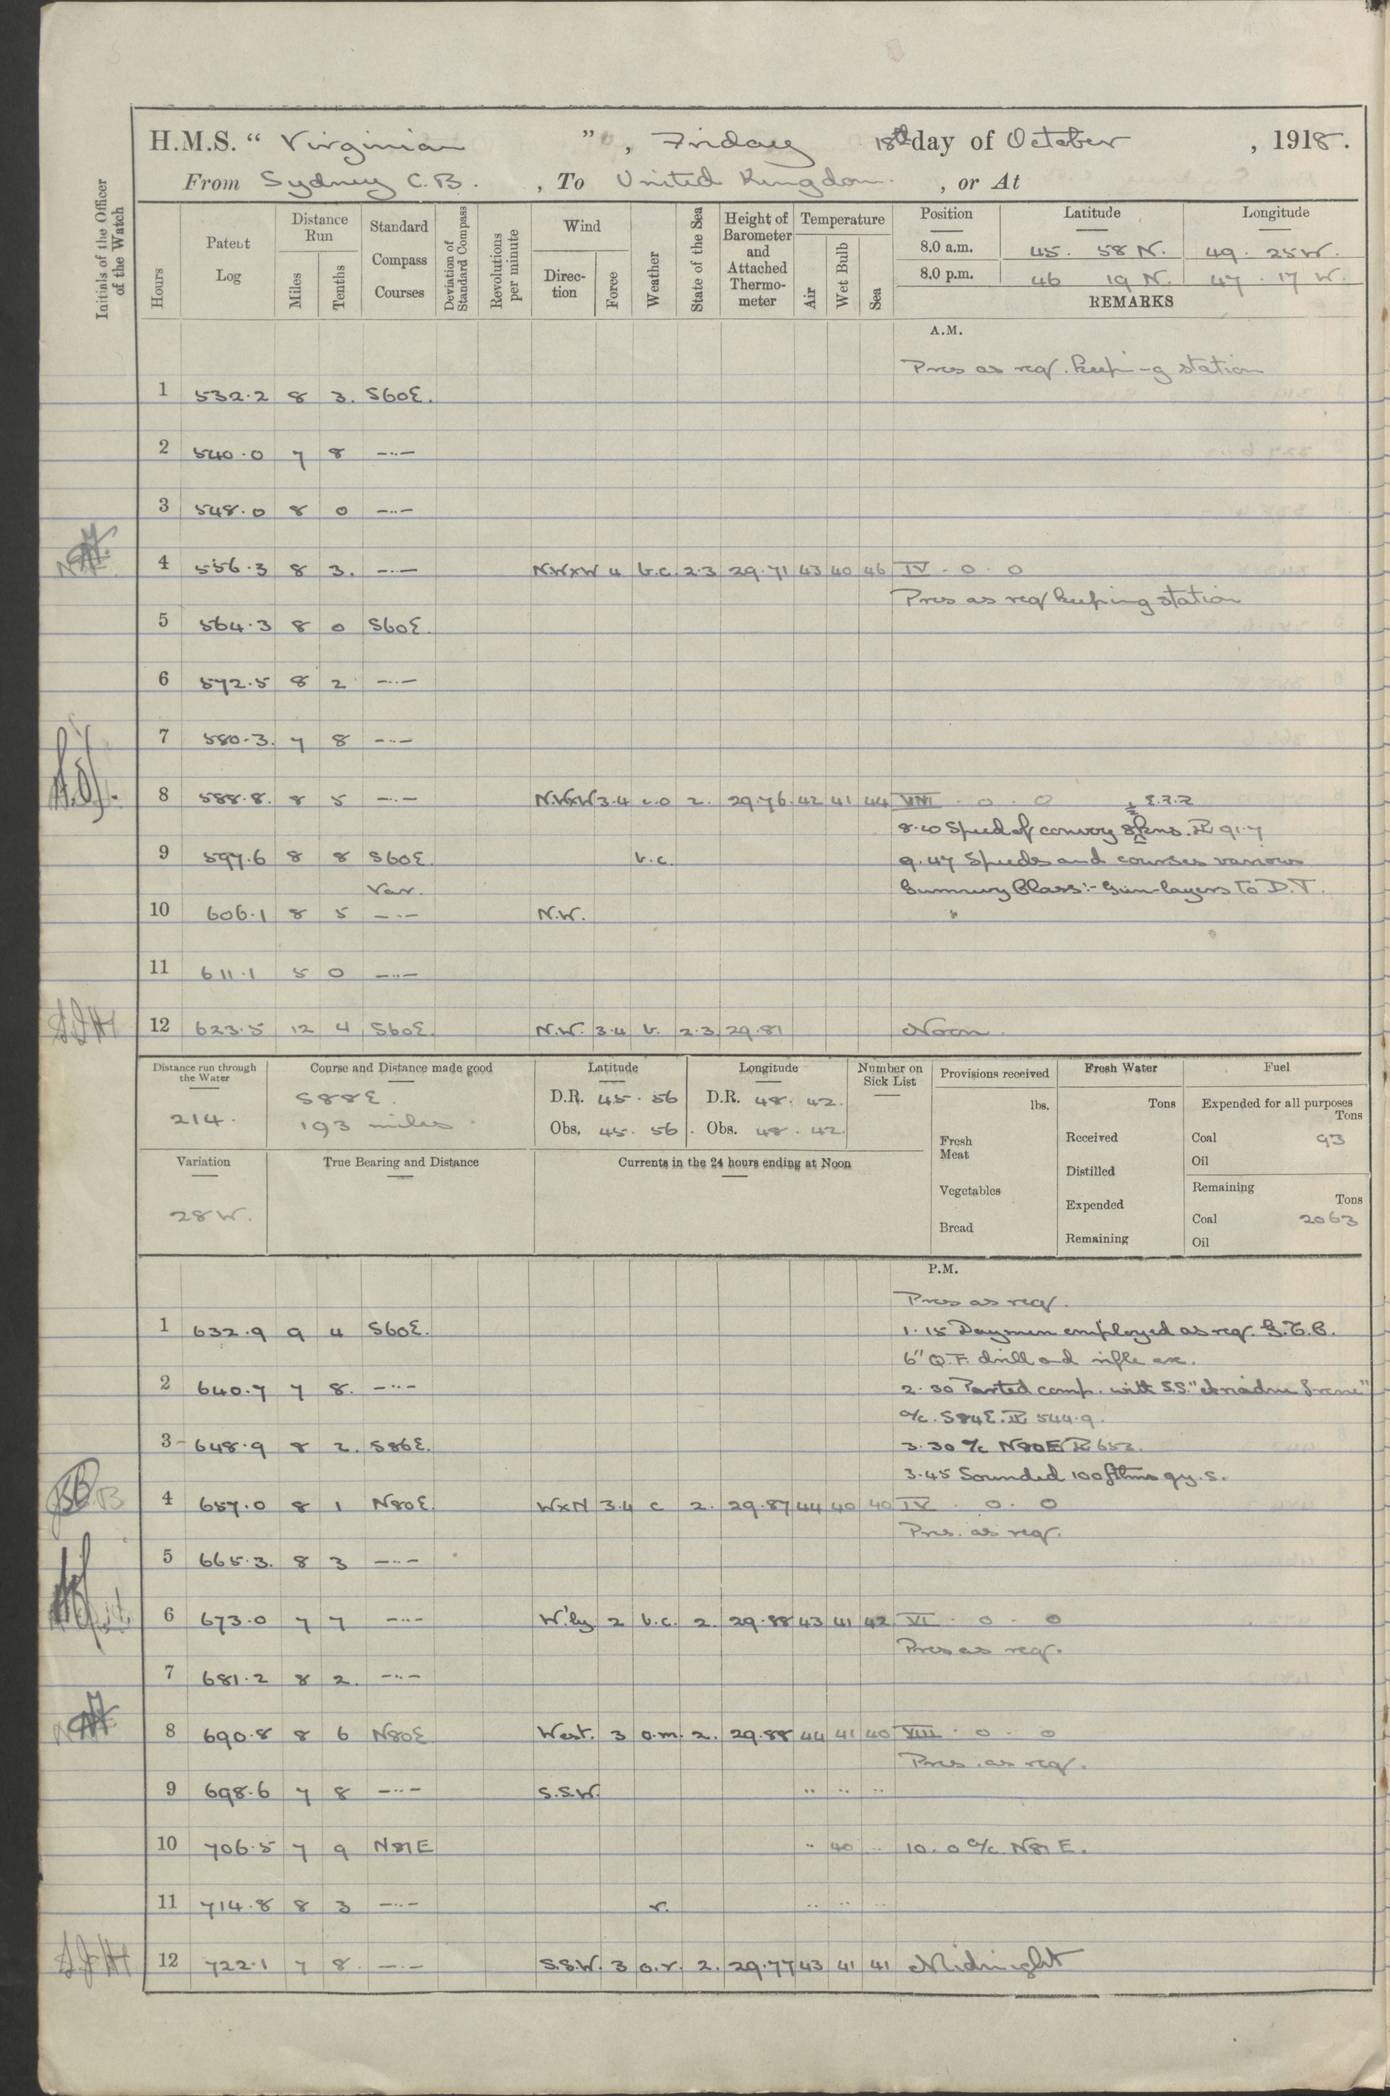 H.M.S. " Virginian ", Friday 18th day of October, 1918.
From Sydney C.B. , To United Kingdom. , or At
Initials of the Officer of the Watch
Hours Patent Log Distance Run Miles Tenths Standard Compass Courses Deviation of Standard Compass Revolutions per minute Wind Direction Force Weather State of the Sea Height of Barometer and Attached Thermometer Temperature Air Wet Bulb Sea Position Latitude Longitude
8.0 a.m. 45. 58 N. 49. 25 W.
8.0 p.m. 46 19 N. 47. 17 W.
REMARKS
A.M.
Pros as req. keeping station
1 532.2 8 3. S60E.
2 540.0 7 8 —..—
3 548.0 8 0 —..—
4 556.3 8 3. —..— N.WxW 4 b.c. 2.3 29.71 43 40 46 IV . 0 . 0
Pros as req keeping station
5 564.3 8 0 S60E.
6 572.5 8 2 —..—
7 580.3. 7 8 —..—
8 588.8. 8 5 —..— N.WxW 3.4 c.o 2. 29.76. 42 41 44 VIII . 0 . 0
8.20 Speed of convoy 8½ kns. 91.7
9 597.6 8 8 S60E. b.c. 9.47 Speeds and courses various
Var. Gunnery Class:- Gun-layers to D.T.
10 606.1 8 5 —..— N.W.
11 611.1 5 0 —..—
12 623.5 12 4 S60E. N.W. 3.4 b. 2.3 29.81 Noon.
Distance run through the Water 214.
Course and Distance made good S88E. 193 miles
Latitude D.R. 45. 56 Obs. 45. 56
Longitude D.R. 48. 42. Obs. 48. 42.
Number on Sick List
Provisions received lbs. Fresh Meat Vegetables Bread
Fresh Water Tons Received Distilled Expended Remaining
Fuel Expended for all purposes Tons Coal 93 Oil Remaining Tons Coal 2063 Oil
Variation 28 W.
True Bearing and Distance
Currents in the 24 hours ending at Noon
P.M.
Pros as req.
1 632.9 9 4 S60E. 1.15 Daymen employed as req. G.T.C.
6" Q.F. drill and rifle ex.
2 640.7 7 8. —..— 2.30 Parted comp. with S.S. "Ariadne Irene"
a/c. S84E. 544.9.
3 648.9 8 2. S86E. 3.30 a/c N80E 652.
3.45 Sounded 100 fthms gy. s.
4 657.0 8 1 N80E. WxN 3.4 c 2. 29.87 44 40 40 IV . 0 . 0
Pros. as req.
5 665.3. 8 3 —..—
6 673.0 7 7 —..— W'ly 2 b.c. 2. 29.88 43 41 42 VI . 0 . 0
Pros as req.
7 681.2 8 2. —..—
8 690.8 8 6 N80E West. 3 o.m. 2. 29.88 44 41 40 VIII . 0 . 0
Pros. as req.
9 698.6 7 8 —..— S.S.W. .. .. ..
10 706.5 7 9 N81E .. 40 .. 10.0 a/c N81E.
11 714.8 8 3 —..— r. .. .. ..
12 722.1 7 8 —..— S.S.W. 3 o.r. 2. 29.77 43 41 41 Midnight